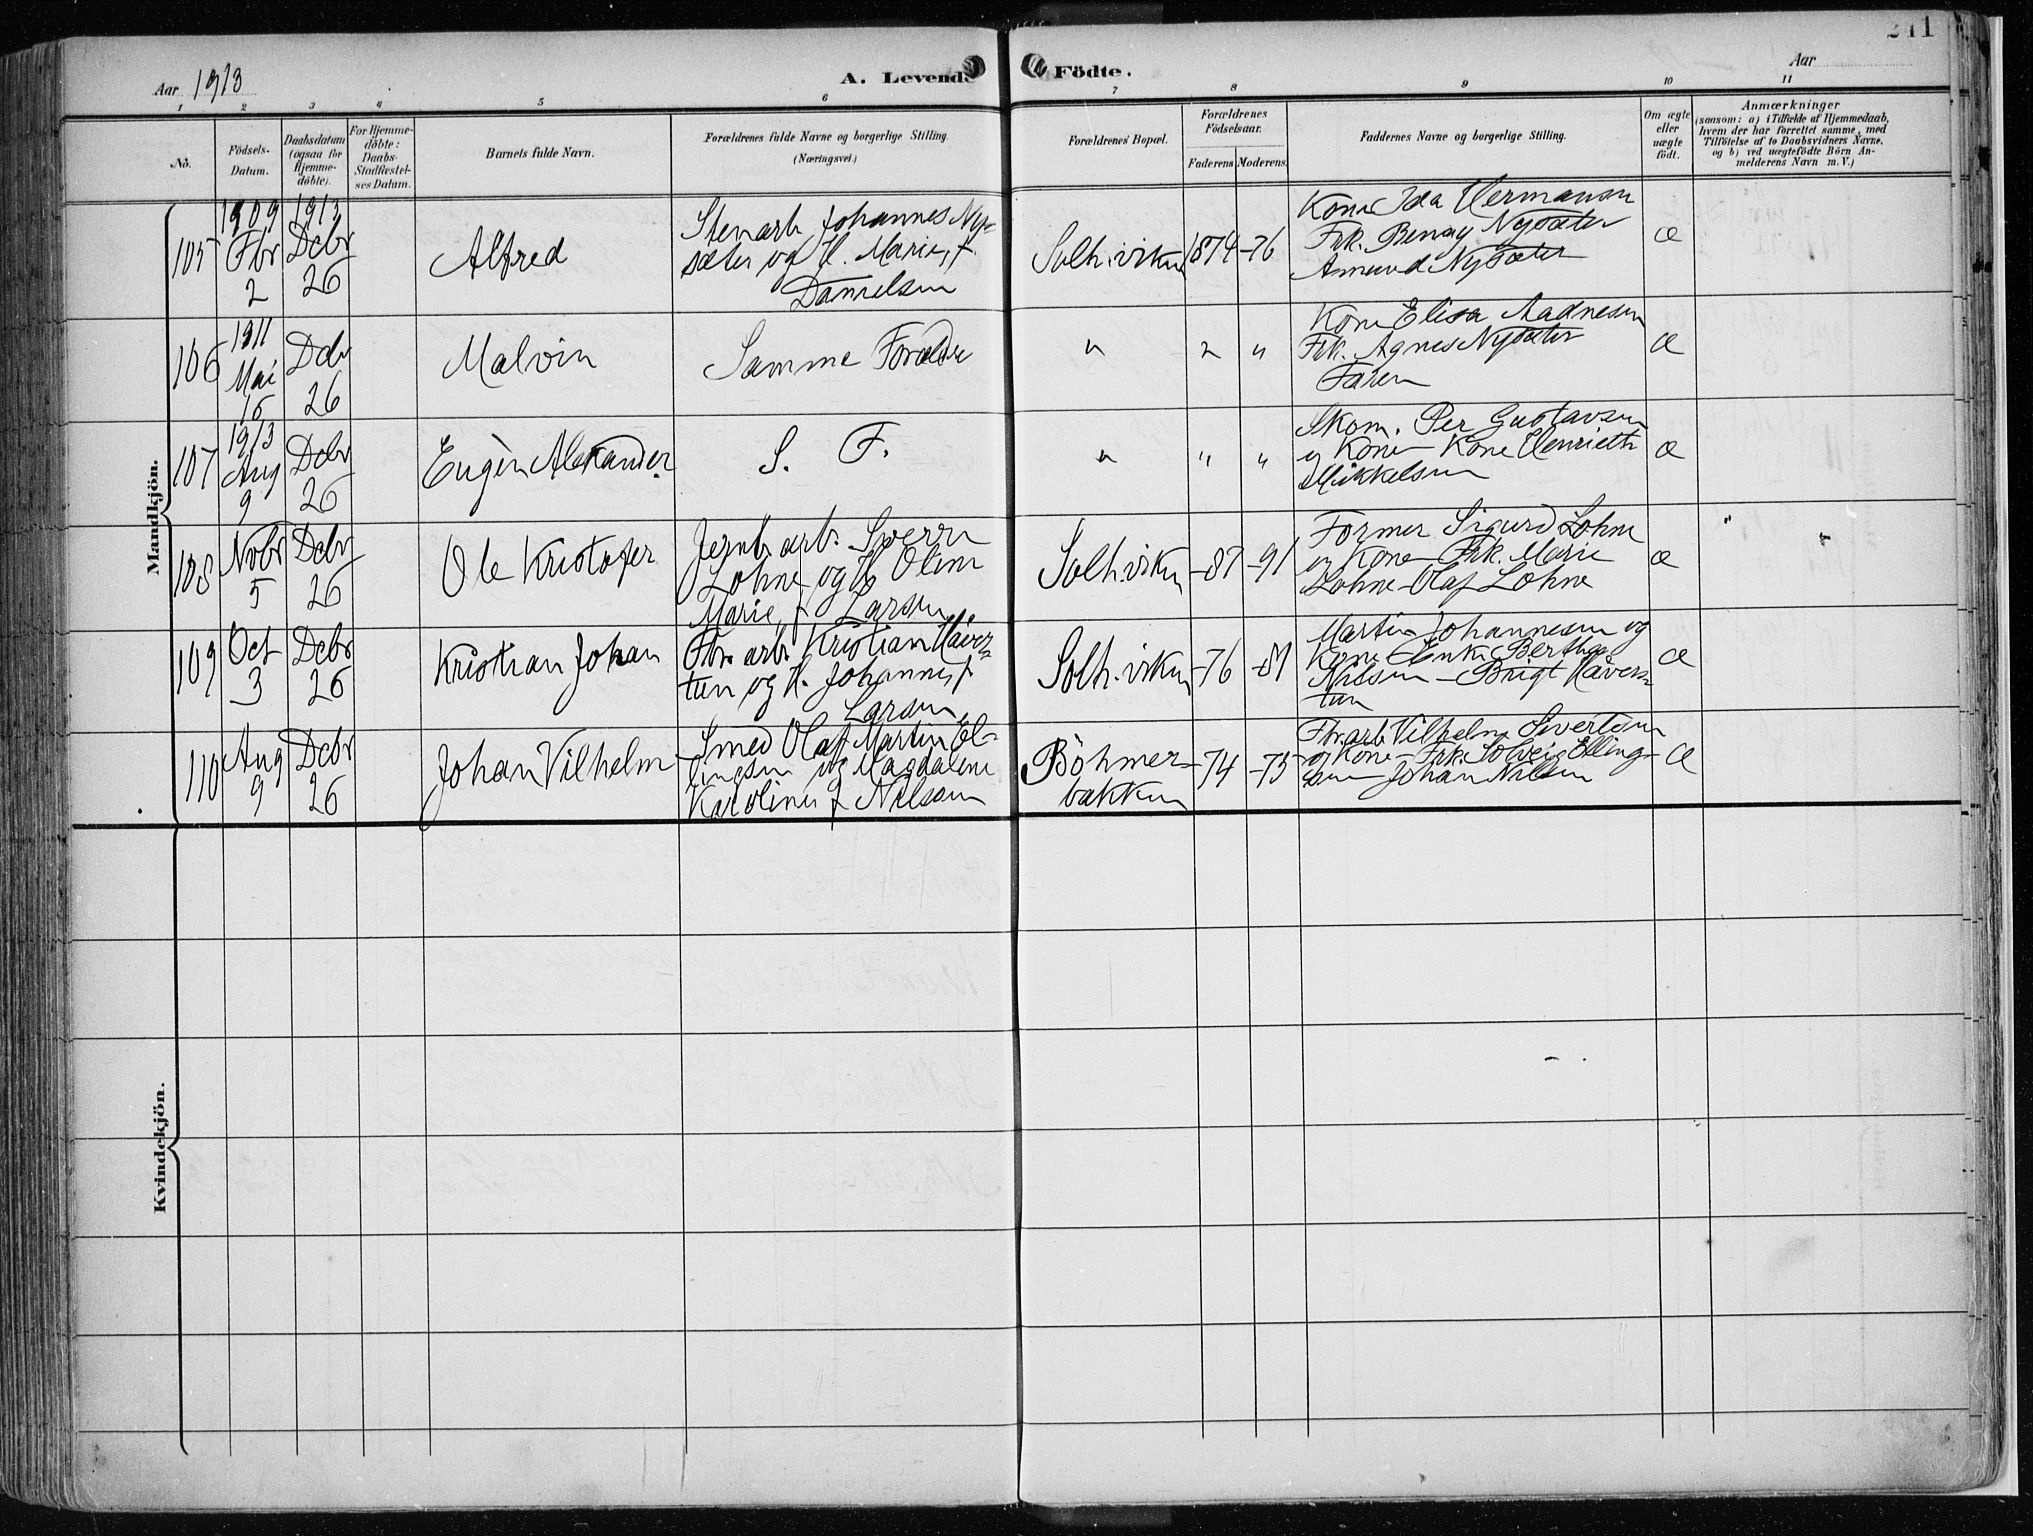 241
Aar 1913
A. Levende Födte.
Aar
1 2 3 4 5 6 7 8 9 10 11
No.
Födsels-Datum.
Daabsdatum (ogsaa for Hjemme-döbte).
For Hjemme-döbte: Daabs-Stadfæstel-ses Datum.
Barnets fulde Navn.
Forældrenes fulde Navne og borgerlige Stilling.
(Næringsvei.)
Forældrenes Bopæl.
Forældrenes Födselsaar.
Faderens Moderens.
Faddernes Navne og borgerlige Stilling.
Om ægte eller uægte födt.
Anmærkninger
(saasom: a) i Tilfælde af Hjemmedaab,
hvem der har forrettet samme, med
Tilföielse af to Daabsvidners Navne,
og b) ved uægtefödte Börn An-
melderens Navn m. V.)
Mandkjön.
105 1909 Fbr 2 1913 Dcbr 26 Alfred
Stenarb. Johannes Ny-
sæter og H. Marie, f.
Danielsen
Solh.viken 1874 -76
Kone Ida Hermansen
Frk. Benny Nysæter
Amund Nysæter
æ
106 1911 Mai 15 Dcbr 26 Malvin
Samme Forældre
" " "
Kone Elisa Aadnesen
Frk. Agnes Nysæter
Faren
æ
107 1913 Aug 9 Dcbr 26 Eugèn Alexander
S. F.
" " "
Skom. Per Gustavsen
og Kone - Kone Henriette
Mikkelsen
æ
108 Nvbr 5 Dcbr 26 Ole Kristofer
Jernb. arb. Sverre
Lohne og H. Oline
Marie, f. Larsen
Solh.viken -87 -91
Former Sigurd Lohne
og Kone - Frk. Marie
Lohne - Olaf Lohne
æ
109 Oct 3 Dcbr 26 Kristian Johan
Fbr. arb. Kristian Haaver-
tun og H. Johanne, f.
Larsen
Solh.viken -76 -81
Martin Johannesen og
Kone Enke Bertha
Nilsen - Brigt
tun
æ
110 Aug 9 Dcbr 26 Johan Vilhelm
Smed Olaf Martin El-
lingsen og Magdalene
Karoline f. Nilsen
Böhmer-
bakken -74 -73
Fbr. arb. Vilhelm Sivertsen
og Kone - Frk. Solveig Elling-
sen - Johan Nilsen
æ
Kvindekjön.